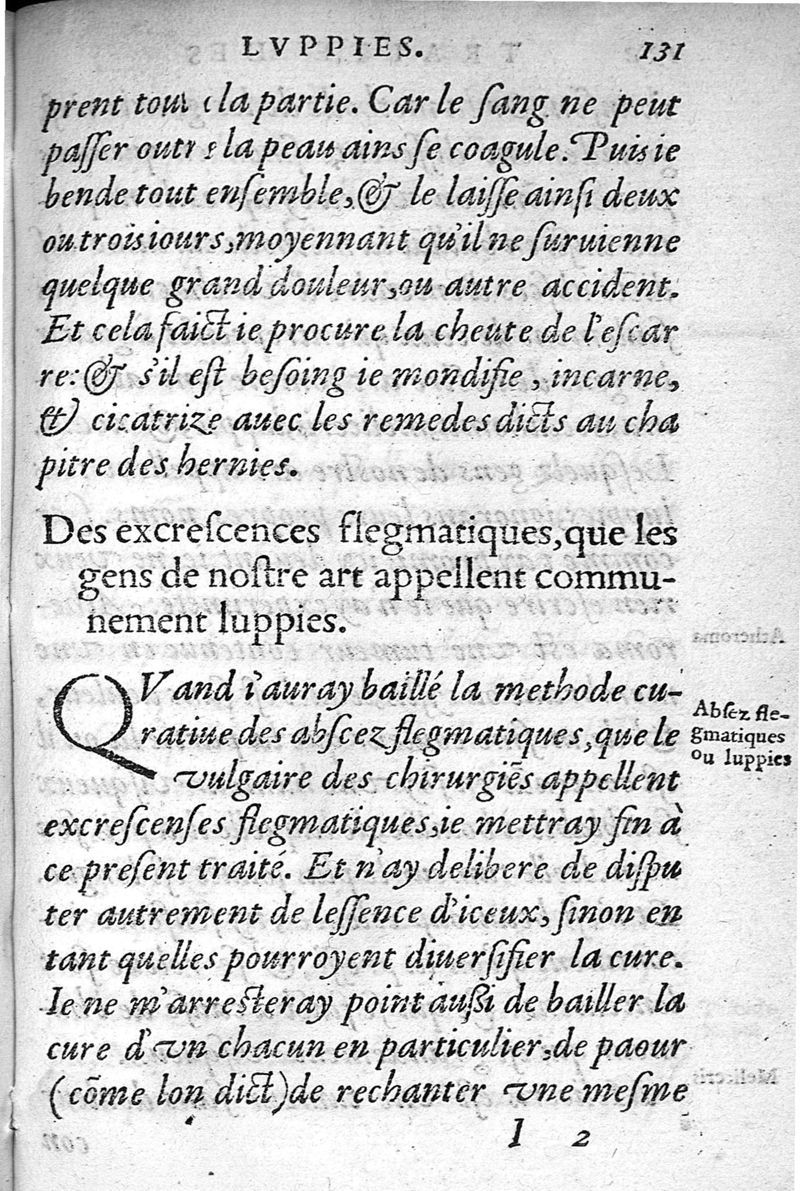 LVPPIES. 131
prent tout la partie. Car le ſang ne peut
paſſer outre la peau ains ſe coagule. Puis ie
bende tout enſemble, & le laiſſe ainſi deux
ou trois iours, moyennant qu'il ne ſuruienne
quelque grand douleur, ou autre accident.
Et cela faict ie procure la cheute de l'eſcar
re: & s'il eſt beſoing ie mondifie, incarne,
& cicatrize auec les remedes dicts au cha
pitre des hernies.
Des excreſcences flegmatiques, que les
gens de noſtre art appellent commu-
nement luppies.
QVand i'auray baillé la methode cu-
ratiue des abſcez flegmatiques, que le
vulgaire des chirurgiẽs appellent
excreſcenſes flegmatiques, ie mettray fin à
ce preſent traité. Et n'ay delibere de diſpu
ter autrement de leſſence d'iceux, ſinon en
tant quelles pourroyent diuerſifier la cure.
Ie ne m'arreſteray point außi de bailler la
cure d'vn chacun en particulier, de paour
(cõme lon dict) de rechanter vne meſme
I 2
Abſez fle-
gmatiques
ou luppies